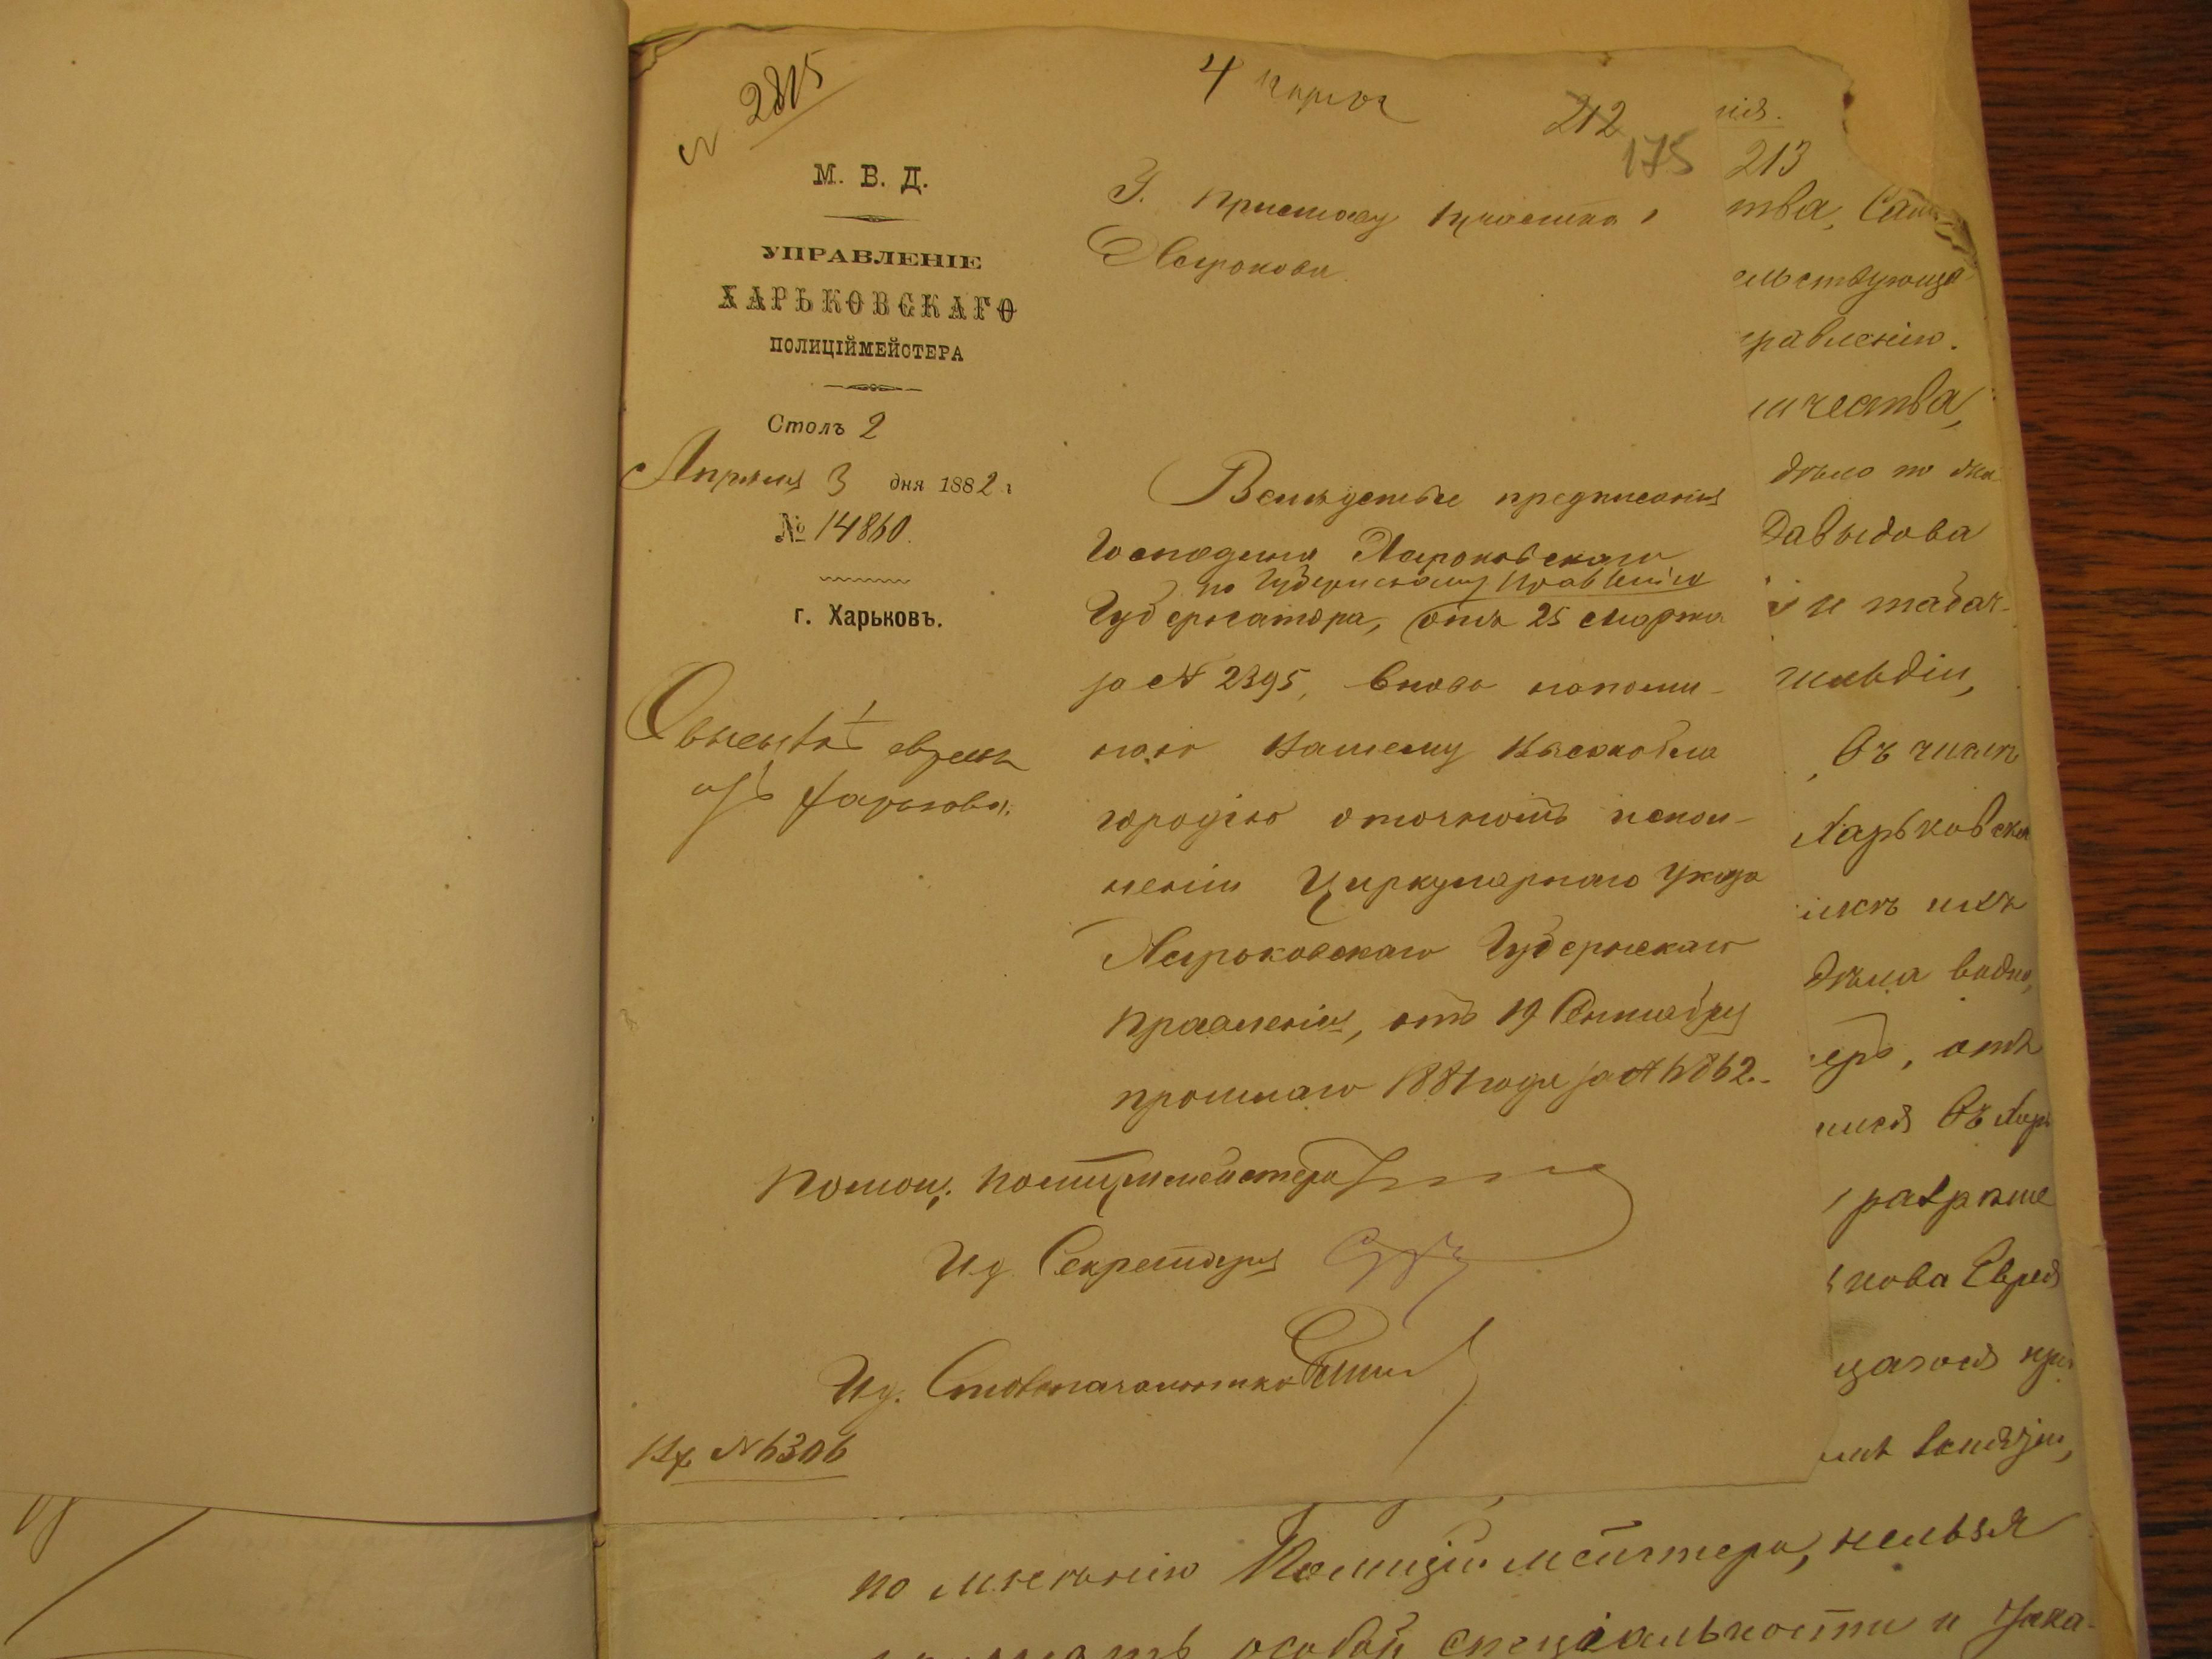 № 2815
4 Апреля
212
175
М. В. Д.
УПРАВЛЕНІЕ
ХАРЬКОВСКАГО
ПОЛИЦІЙМЕЙСТЕРА
Столъ 2
Апрѣля 3 дня 1882 г
№ 14860.
г. Харьковъ.
О выселкѣ евреевъ
изъ Харькова.
Г. Приставу Участка
Г Харькова.
Вслѣдствіе предписанія
Господина Харьковскаго
по Губернскому Правленію
Губернатора, отъ 25 марта
за № 2395, вновь напоми-
наю Вашему Высокобла
городію о точномъ испол-
неніи Циркулярнаго Указа
Харьковскаго Губернскаго
Правленія, отъ 19 Сентября
прошлаго 1881 года за № 6862.
Помощ. Полиціймейстера
И.д. Секретаря
И.д. Столоначальника
Вх. № 6306
нія.
213
тва, Сам
ельствующа
правленію.
ичества,
дѣло по
Давыдова
и табач-
гильдіи,
въ числѣ
Харьковска
ихъ
дѣла видно,
еръ, отъ
ися въ Харь
разрѣше
кова Еврея
по мнѣнію Полиціймейстера, нельзя
особой спеціальности и